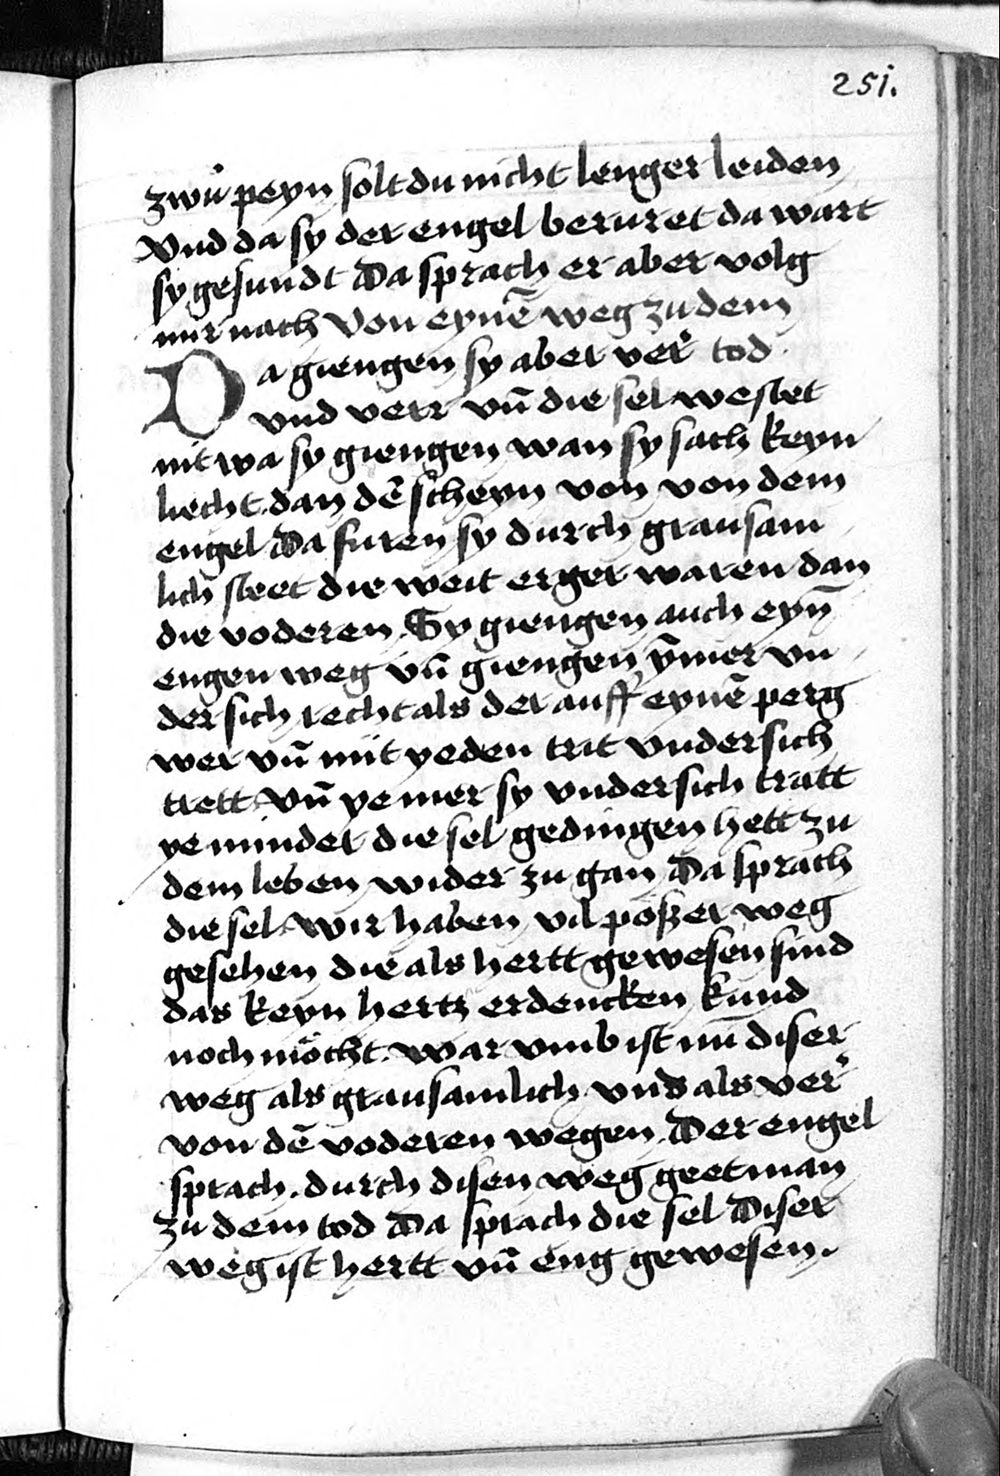 251.
zwu peyn solt du nicht lenger leiden
Vnd da sy der engel beruret da wart
sy gesundt Da sprach er aber volg
mir nach Von eynē weg zu dem
Da giengen sy aber ver tod
vnd verr vn̄ die sel westet
nit wa sy giengen wan sy sach keyn
liecht. dan dē scheyn von von dem
engel Da furen sy durch grausam
lich steet die weit erger waren dan
die voderen. Sy giengen auch eyn̄
engen weg vn̄ giengen ȳmer vn
der sich recht als der auff eynē perg
wer vn̄ mit yeden trit vndersich
trett. Vn̄ ye mer sy vndersich tratt
ye minder die sel gedingen hett zu
dem leben wider zu gan Da sprach
die sel. Wir haben vil poßer weg
gesehen die als hertt gewesen sind
das keyn hertz erdencken kund
noch möcht. war vmb ist nu͞ diser
weg als grausamlich vnd als ver
von dē voderen wegen. Der engel
sprach. durch disen weg geet man
zu dem tod Da sprach die sel Diser
weg ist hertt vn̄ eng gewesen.